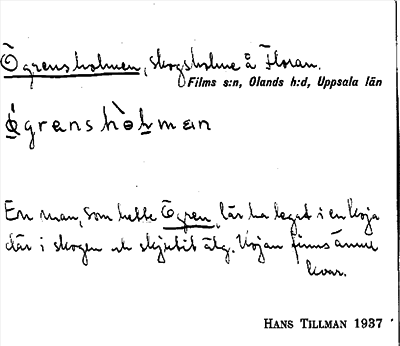 Ögrensholmen, skogsholme å Floran.
Films s:n, Olands h:d, Uppsala län
ö̀grenshòlman
En man, som hette Ögren, lär ha legat i en koja
där i skogen och skjutit älg. Kojan finns ännu
kvar.
HANS TILLMAN 1937